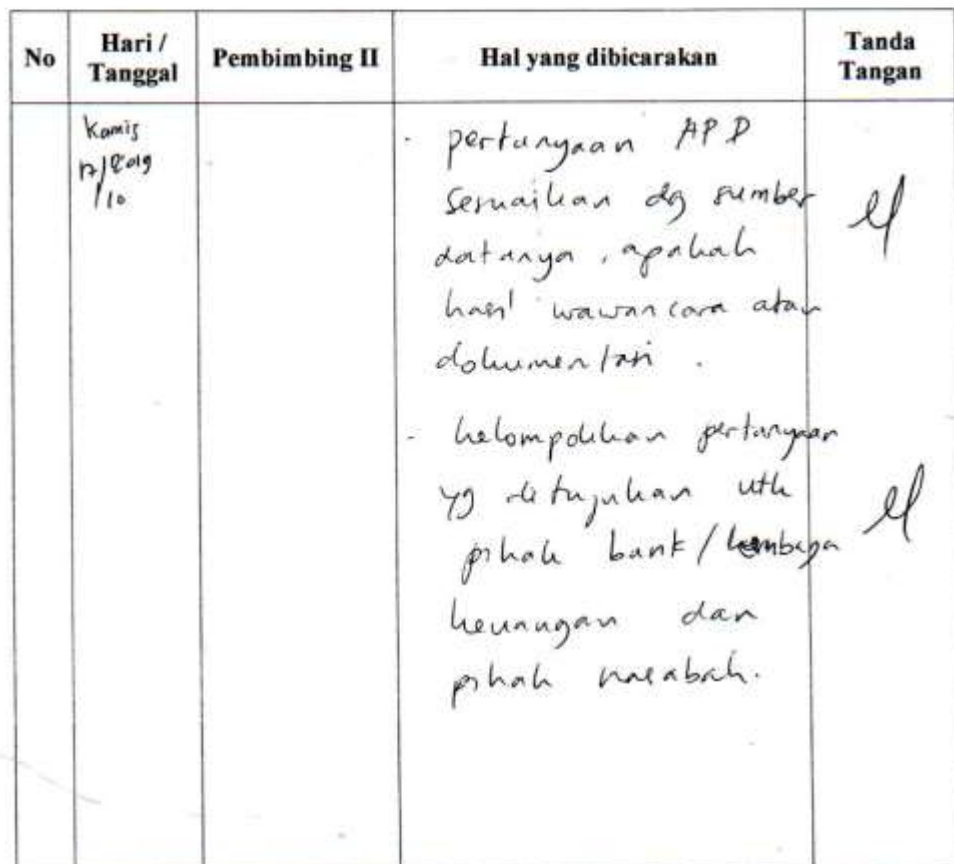 No
Hari /
Tanggal
Pembimbing II
Hal yang dibicarakan
Tanda
Tangan
Kamis
17/2019
/10
- pertanyaan APD
sesuaikan dg sumber
datanya, apakah
hasil wawancara atau
dokumentasi.
- kelompokkan pertanyaan
yg ditujukan utk
pihak bank/lembaga
keuangan dan
pihak nasabah.